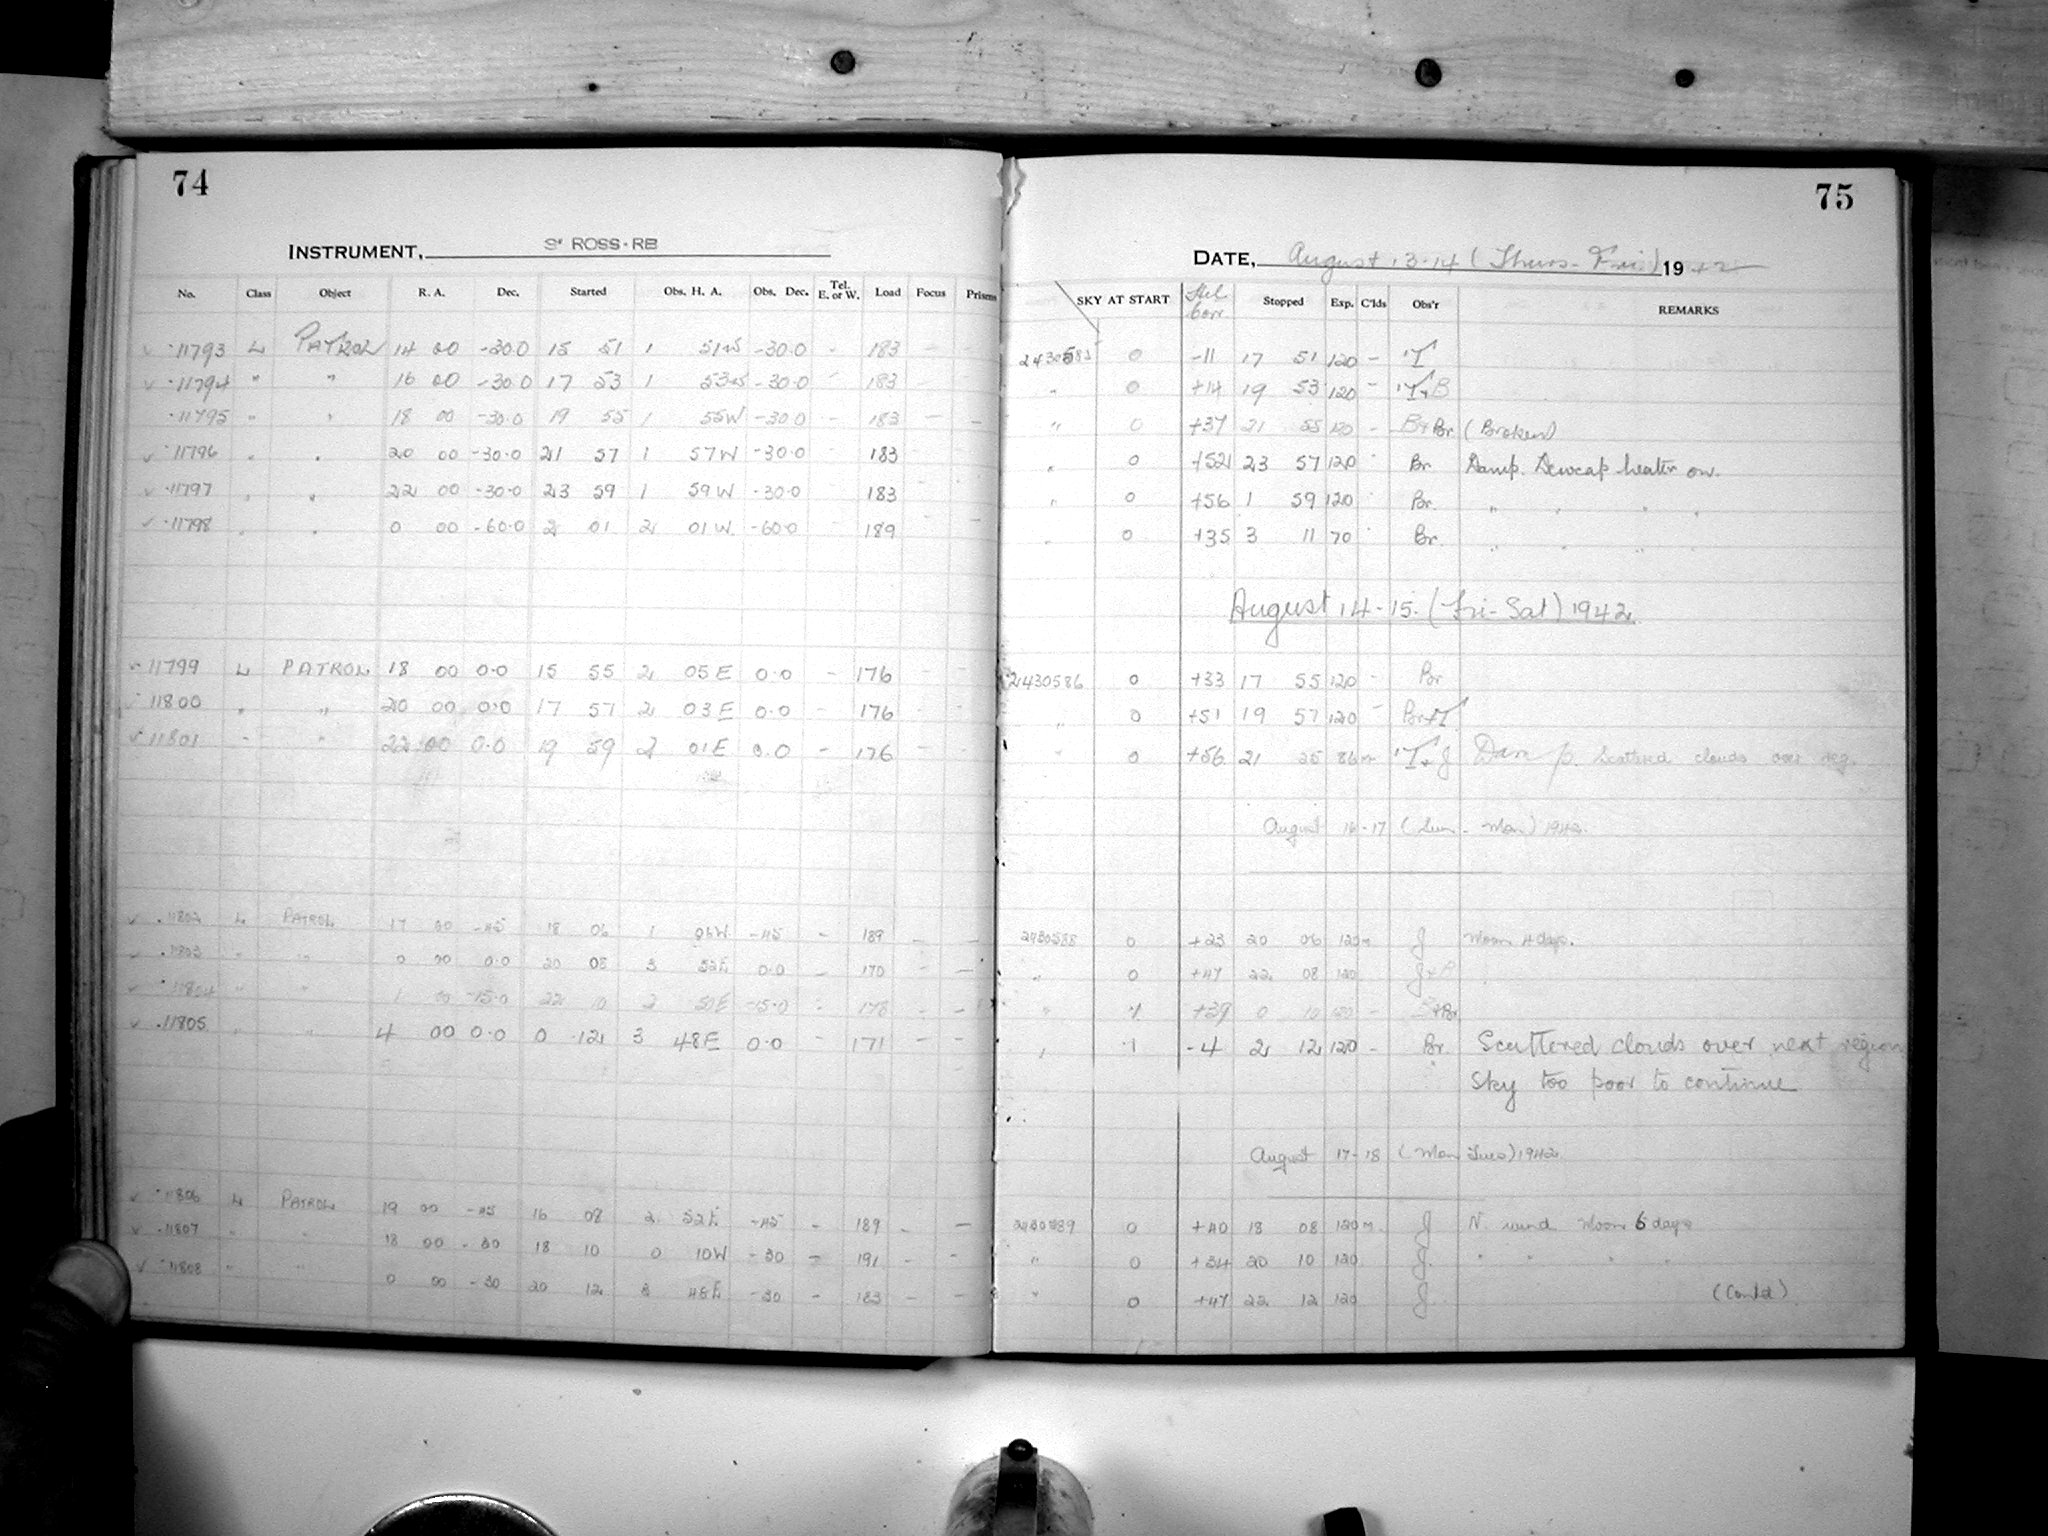 74
INSTRUMENT, 3" ROSS-RB
No. Class Object R. A. Dec. Started Obs. H. A. Obs. Dec. Tel. E. or W. Load Focus Prisms
11793 L PATROL 14 00 -30.0 15 51 1 51W -30.0 - 183 - -
11794 " " 16 00 -30.0 17 53 1 53W -30.0 - 183 - -
11795 " " 18 00 -30.0 19 55 1 55W -30.0 - 183 - -
11796 " " 20 00 -30.0 21 57 1 57W -30.0 - 183 - -
11797 " " 22 00 -30.0 23 59 1 59W -30.0 - 183 - -
11798 " " 0 00 -60.0 2 01 2 01W -60.0 - 189 - -
11799 L PATROL 18 00 0.0 15 55 2 05E 0.0 - 176 - -
11800 " " 20 00 0.0 17 57 2 03E 0.0 - 176 - -
11801 " " 22 00 0.0 19 59 2 01E 0.0 - 176 - -
11802 L PATROL 17 00 -45 18 06 1 06W -45 - 189 - -
11803 " " 0 00 0.0 20 08 3 52E 0.0 - 170 - -
11804 " " 1 00 -15.0 22 10 2 50E -15.0 - 178 - -
11805 " " 4 00 0.0 0 12 3 48E 0.0 - 171 - -
11806 L PATROL 19 00 -45 16 08 2 52E -45 - 189 - -
11807 " " 18 00 -30 18 10 0 10W -30 - 191 - -
11808 " " 0 00 -30 20 12 3 48E -30 - 183 - -
75
DATE, August 13-14 (Thurs-Fri) 1942
SKY AT START Hel Corr Stopped Exp. C'lds Obs'r REMARKS
2430585 0 -11 17 51 120 - T
" 0 +14 19 53 120 - T+B
" 0 +37 21 55 120 - B+Br (Broken)
" 0 +52 23 57 120 - Br Damp. Dewcap heater on.
" 0 +56 1 59 120 - Br. " " " "
" 0 +35 3 11 70 - Br. " " " "
August 14-15. (Fri-Sat) 1942
2430586 0 +33 17 55 120 - Br
" 0 +51 19 57 120 - Br+T
" 0 +56 21 25 86m T+J Damp. Scattered clouds over reg.
August 16-17 (Sun-Mon) 1942.
2430588 0 +23 20 06 120m J Moon 4 days.
" 0 +47 22 08 120 J+B
" 1 +39 0 10 120 - B+Br
" 1 -4 2 12 120 - Br. Scattered clouds over next region
Sky too poor to continue
August 17-18 (Mon Tues) 1942
2430589 0 +40 18 08 120m J N. wind Moon 6 days
" 0 +34 20 10 120 J. " " " "
" 0 +47 22 12 120 J. (Contd)